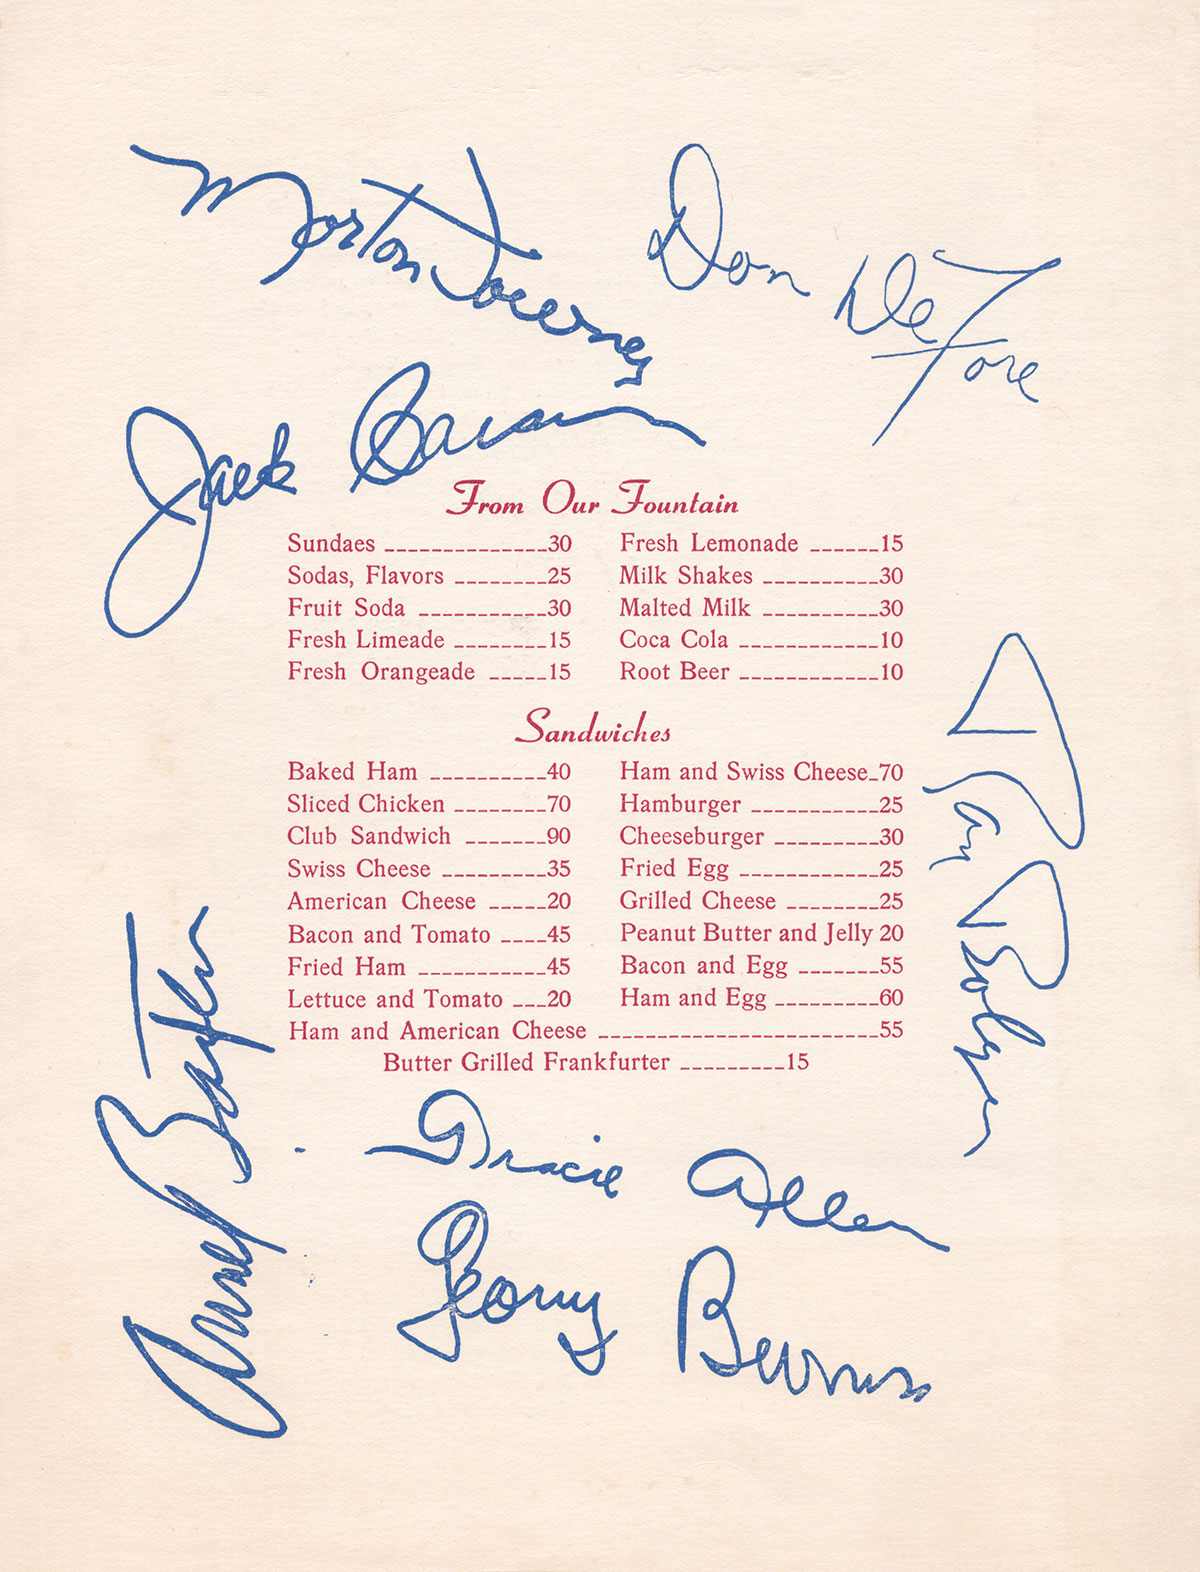 Morton Downey
Don DeFore
Jack Carson
From Our Fountain
Sundaes ______________30
Sodas, Flavors ________25
Fruit Soda ___________30
Fresh Limeade _______15
Fresh Orangeade _____15
Fresh Lemonade ______15
Milk Shakes __________30
Malted Milk __________30
Coca Cola ____________10
Root Beer ____________10
Sandwiches
Baked Ham __________40
Sliced Chicken ________70
Club Sandwich _______90
Swiss Cheese __________35
American Cheese _____20
Bacon and Tomato ____45
Fried Ham ___________45
Lettuce and Tomato ___20
Ham and Swiss Cheese_70
Hamburger ___________25
Cheeseburger __________30
Fried Egg ____________25
Grilled Cheese ________25
Peanut Butter and Jelly 20
Bacon and Egg _______55
Ham and Egg _________60
Ham and American Cheese ___________________________55
Butter Grilled Frankfurter _________15
Ray Bolger
Anne Baxter
Gracie Allen
George Burns